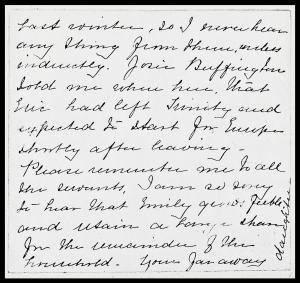 last winter, so I never hear
any thing from them, unless
indirectly. Josie Buffington
told me when here, that
Eric had left Trinity and
expected to start for Europe
shortly after leaving –
Please remember me to all
the servants. I am so sorry
to hear that Emily grows feeble
and retain a large share
for the remainder of the
household. Your far away
daughter